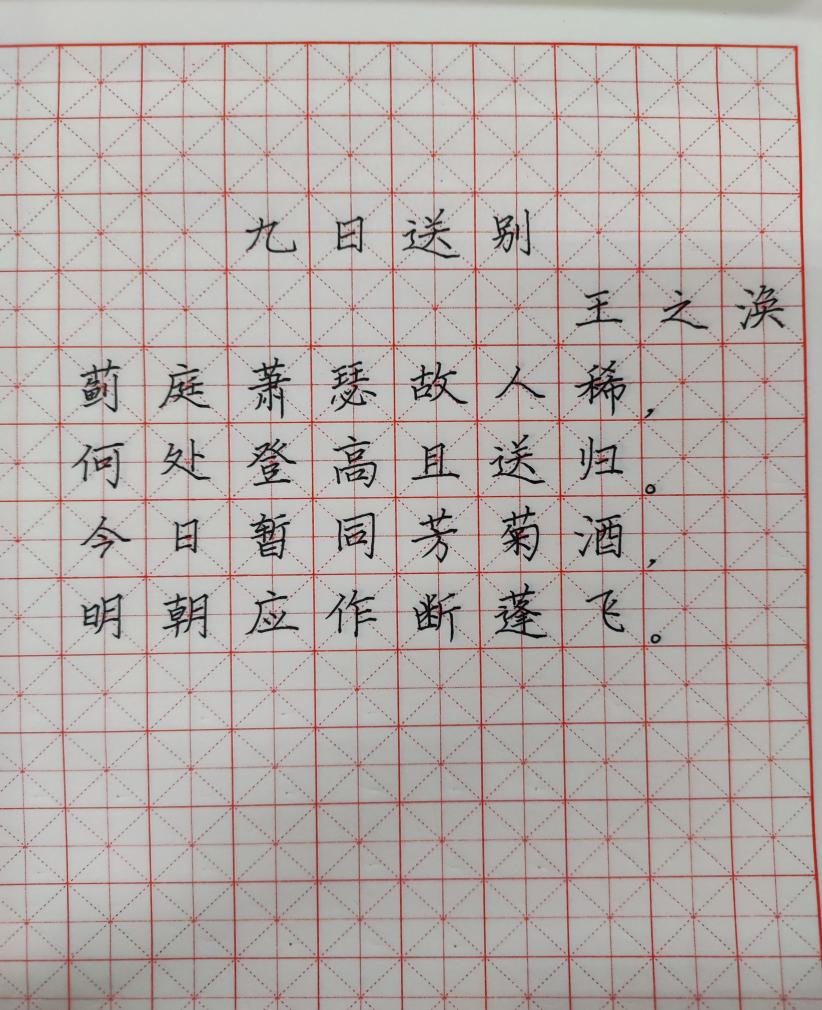 九日送别
王之涣
蓟庭萧瑟故人稀，
何处登高且送归。
今日暂同芳菊酒，
明朝应作断蓬飞。